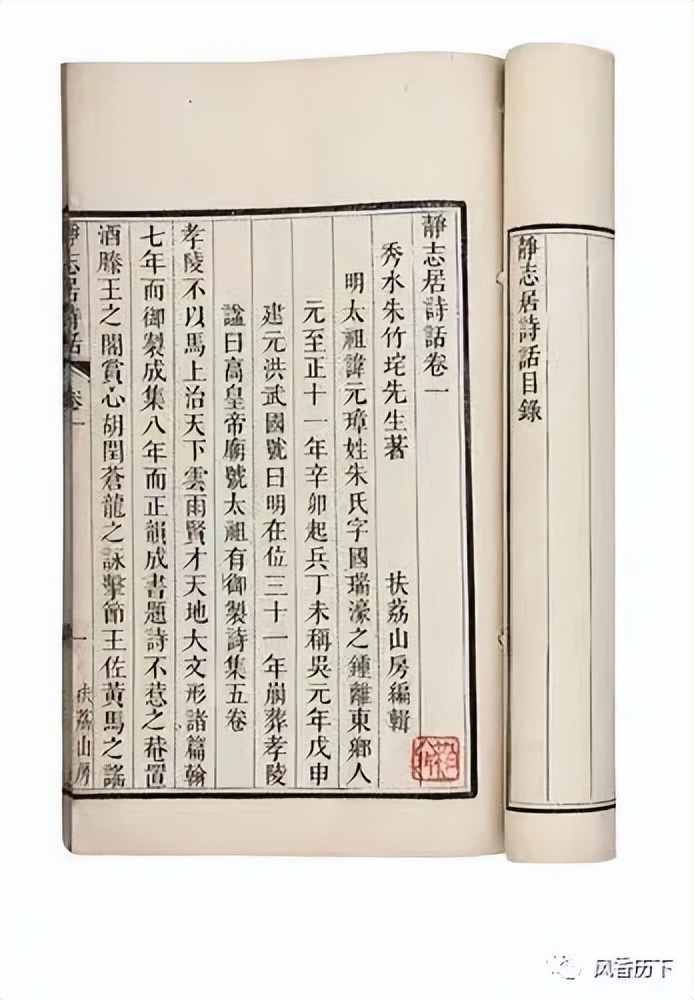 靜志居詩話目錄
靜志居詩話卷一
秀水朱竹垞先生著 扶荔山房編輯
明太祖諱元璋姓朱氏字國瑞濠之鍾離東鄉人
元至正十一年辛卯起兵丁未稱吳元年戊申
建元洪武國號曰明在位三十一年崩葬孝陵
諡曰高皇帝廟號太祖有御製詩集五卷
孝陵不以馬上治天下雲雨賢才天地大文形諸篇翰
七年而御製成集八年而正韻成書題詩不惹之菴置
酒滕王之閣賞心胡閏蒼龍之詠擊節王佐黃馬之謠
靜志居詩話 卷一 一 扶荔山房
风香历下